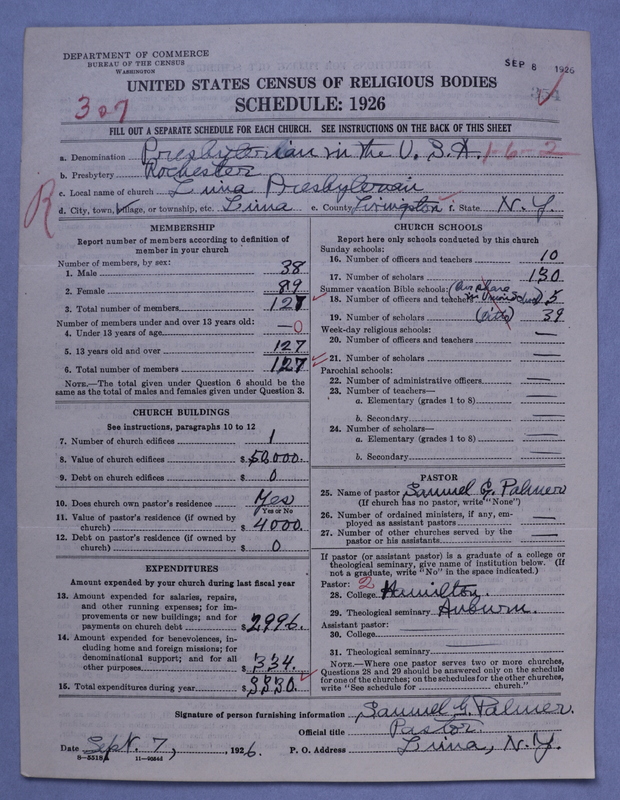 DEPARTMENT OF COMMERCE
BUREAU OF THE CENSUS
WASHINGTON
SEP 8 1926
UNITED STATES CENSUS OF RELIGIOUS BODIES
SCHEDULE: 1926
307
FILL OUT A SEPARATE SCHEDULE FOR EACH CHURCH. SEE INSTRUCTIONS ON THE BACK OF THIS SHEET
a. Denomination Presbyterian in the U.S.A. 1-6-2
b. Presbytery Rochester
c. Local name of church Lima Presbyterian
R
d. City, town, village, or township, etc. Lima e. County Livingston f. State N.Y.
MEMBERSHIP
Report number of members according to definition of
member in your church
Number of members, by sex:
1. Male 38
2. Female 89
3. Total number of members 127
Number of members under and over 13 years old:
4. Under 13 years of age — 0
5. 13 years old and over 127
6. Total number of members 127
NOTE.—The total given under Question 6 should be the
same as the total of males and females given under Question 3.
CHURCH BUILDINGS
See instructions, paragraphs 10 to 12
7. Number of church edifices 1
8. Value of church edifices $ 50,000.
9. Debt on church edifices $ 0
10. Does church own pastor's residence Yes
Yes or No
11. Value of pastor's residence (if owned by
church) $ 4000.
12. Debt on pastor's residence (if owned by
church) $ 0
EXPENDITURES
Amount expended by your church during last fiscal year
13. Amount expended for salaries, repairs,
and other running expenses; for im-
provements or new buildings; and for
payments on church debt $ 2996.
14. Amount expended for benevolences, in-
cluding home and foreign missions; for
denominational support; and for all
other purposes 334.
15. Total expenditures during year $ 3330.
CHURCH SCHOOLS
Report here only schools conducted by this church
Sunday schools:
16. Number of officers and teachers 10
17. Number of scholars 130
Summer vacation Bible schools: (Our share
18. Number of officers and teachers in Union School) 5
19. Number of scholars (ditto) 39
Week-day religious schools:
20. Number of officers and teachers —
21. Number of scholars —
Parochial schools:
22. Number of administrative officers —
23. Number of teachers—
a. Elementary (grades 1 to 8) —
b. Secondary —
24. Number of scholars—
a. Elementary (grades 1 to 8) —
b. Secondary —
PASTOR
25. Name of pastor Samuel G. Palmer
(If church has no pastor, write "None")
26. Number of ordained ministers, if any, em-
ployed as assistant pastors —
27. Number of other churches served by the
pastor or his assistants —
If pastor (or assistant pastor) is a graduate of a college or
theological seminary, give name of institution below. (If
not a graduate, write "No" in the space indicated.)
Pastor: 2
28. College Hamilton.
29. Theological seminary Auburn.
Assistant pastor:
30. College
31. Theological seminary
NOTE.—Where one pastor serves two or more churches,
Questions 28 and 29 should be answered only on the schedule
for one of the churches; on the schedules for the other churches,
write "See schedule for church."
Signature of person furnishing information Samuel G. Palmer.
Official title Pastor.
Date Sept. 7, 1926. P. O. Address Lima, N.Y.